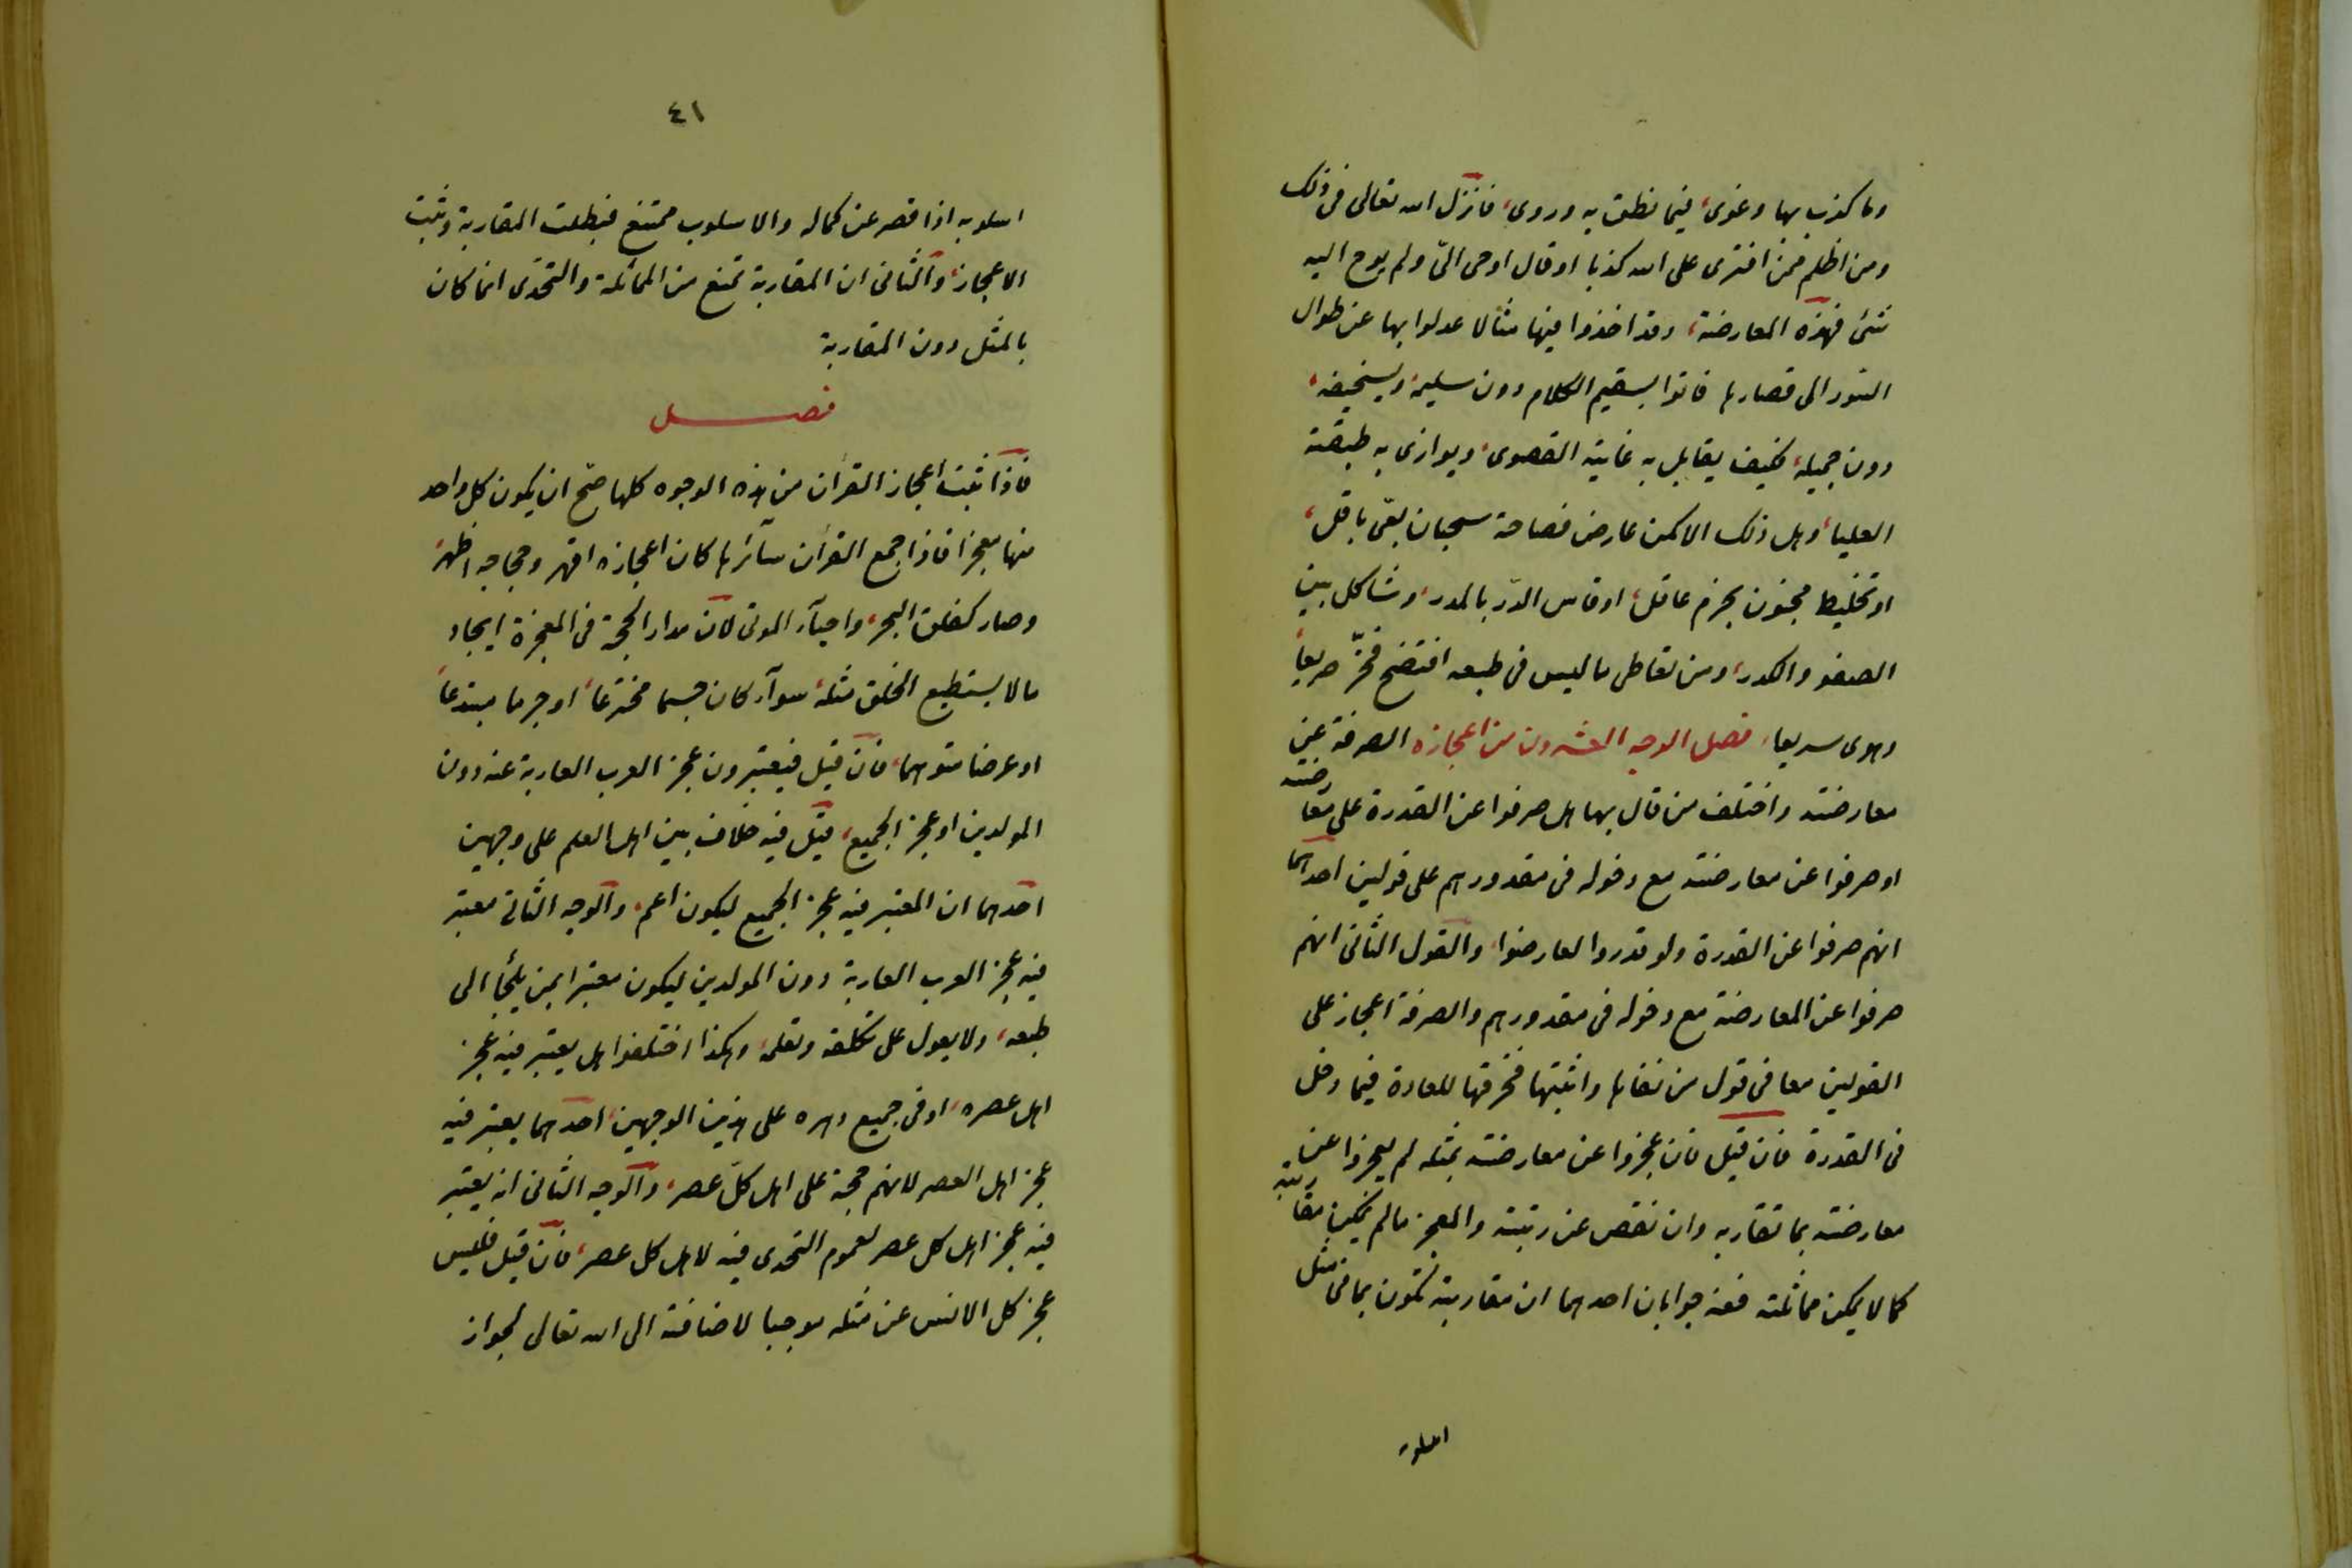 وما كذب بها وغوى، فيما نطق به وروى، فانزل الله تعالى فى ذلك
ومن اظلم ممن افترى على الله كذبا او قال اوحى الىّ ولم يوح اليه
شئ فهذه المعارضة، وقد اخذوا فيها مثالا عدلوا بها عن طوال
السور الى قصارها فاتوا بسقيم الكلام دون سليمه وبسخيفه،
دون جميله، فكيف يقابل به غاية القصوى، ويوازى به طبقته
العليا، وهل ذلك الا كمن عارض فصاحة سحبان بعىّ باقل،
او تخليط مجنون بحزم عاقل، او قاس الدّر بالمدر، وشاكل بين
الصفو والكدر، ومن تعاطى ما ليس فى طبعه افتضح فخرّ صريعاً
وهوى سريعا، فصل الوجه العشرون من اعجازه الصرفة عن
معارضته واختلف من قال بها هل صرفوا عن القدرة على معارضته
او صرفوا عن معارضته مع دخوله فى مقدورهم على قولين احدهما
انهم صرفوا عن القدرة ولو قدروا لعارضوا، والقول الثانى انهم
صرفوا عن المعارضة مع دخوله فى مقدورهم والصرفة اعجاز على
القولين معا فى قول من نفاها واثبتها فخرقها للعادة فيما دخل
فى القدرة فان قيل فان عجزوا عن معارضته بمثله لم يعجزوا عن
معارضته بما تقاربه وان نقص عن رتبته والمعجز ما لم يمكن مقاربته
كما لا يمكن مماثلته فعنه جوابان احدهما ان مقاربته تكون بما فى مثل
اسلوبه
٤١
اسلوبه اذا قصر عن كماله والاسلوب ممتنع فبطلت المقاربة وثبت
الاعجاز، والثانى ان المقاربة تمنع من المماثلة والتحدى انما كان
بالمثل دون المقاربة
فصل
فاذا ثبت اعجاز القرآن من هذه الوجوه كلها صحّ ان يكون كل واحد
منها معجزا فاذا جمع القرآن سائرها كان اعجازه اقهر وحجاجه اظهر،
وصار كفلق البحر، واحياء الموتى لان مدار الحجة فى المعجزة ايجاد
ما لا يستطيع الخلق مثله، سواء كان جسما مخترعاً، او جرما مبتدعاً
او عرضا متوهما، فان قيل فيعتبرون عجز العرب العاربة عنه دون
المولدين او عجز الجميع، قيل فيه خلاف بين اهل العلم على وجهين
احدهما ان المعتبر فيه عجز الجميع ليكون اعم، والوجه الثانى معتبر
فيه عجز العرب العاربة دون المولدين ليكون معتبرا بمن يلجأ الى
طبعه، ولا يعول على تكلفه وتعلمه، وهكذا اختلفوا هل يعتبر فيه عجز
اهل عصره، او فى جميع دهره على هذين الوجهين، احدهما يعتبر فيه
عجز اهل العصر لانهم حجة على اهل كلّ عصر، والوجه الثانى انه يعتبر
فيه عجز اهل كل عصر لعموم التحدى فيه لاهل كل عصر، فان قيل فليس
عجز كل الانس عن مثله موجبا لاضافته الى الله تعالى لجواز